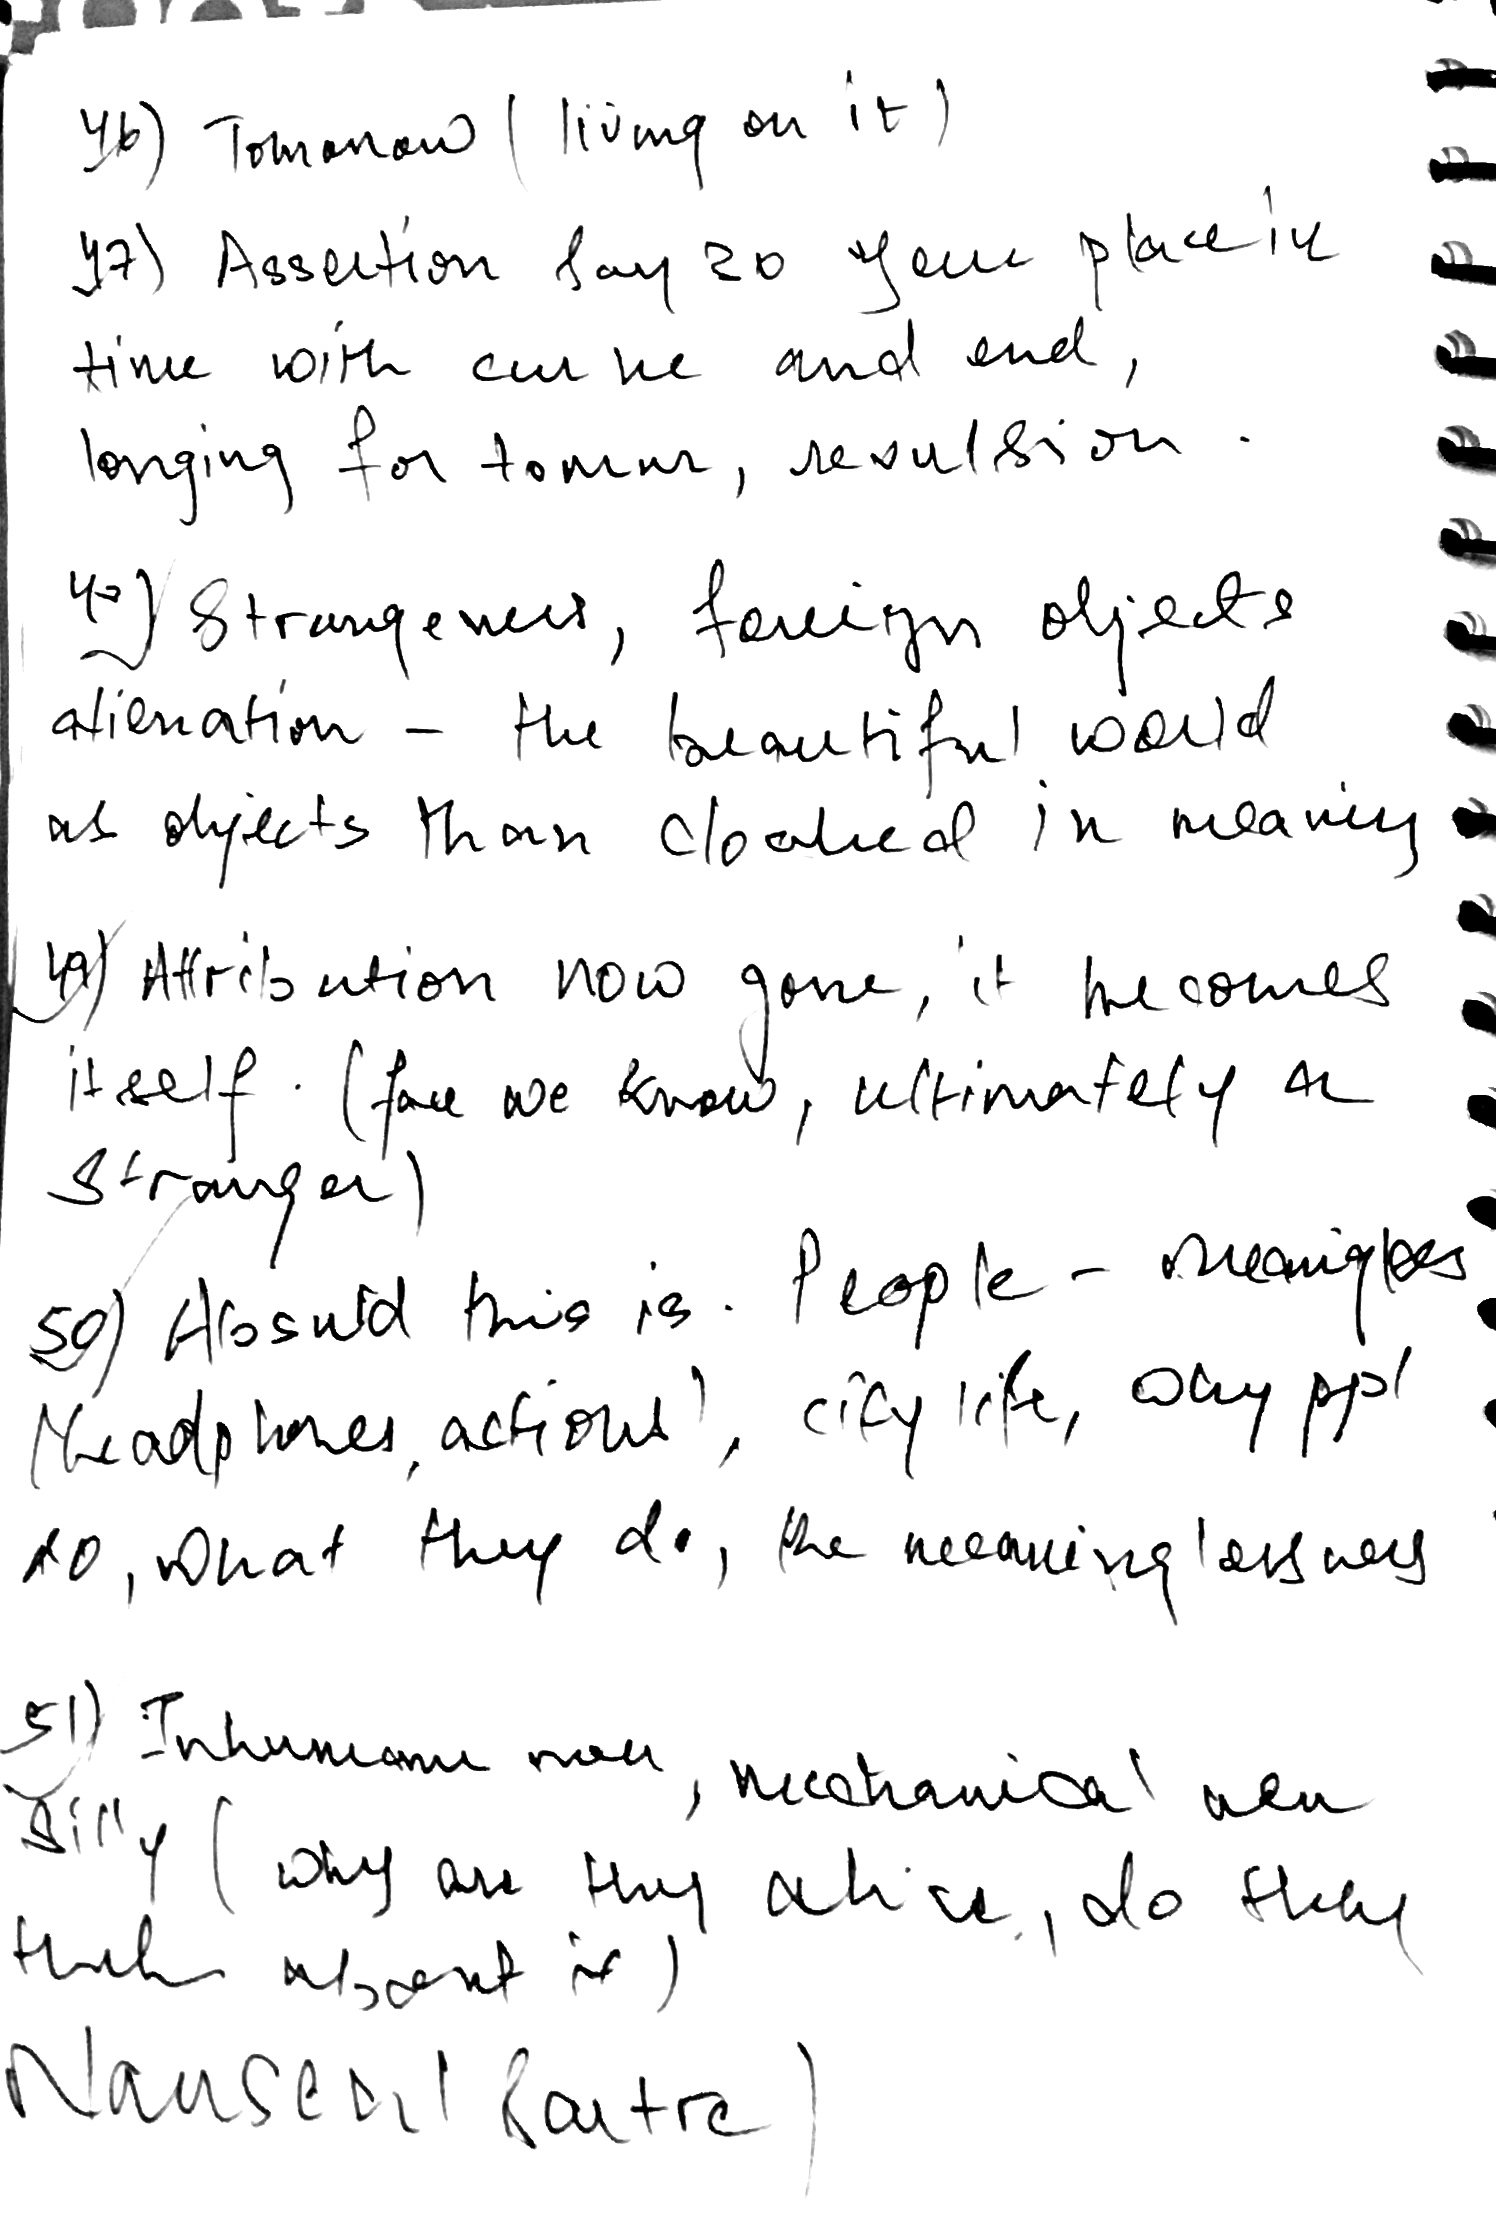 46) Tomorrow (living on it)
47) Assertion say 30 your place in
time with curve and end,
longing for tomorr, revulsion.
48) Strangeness, foreign objects
alienation - the beautiful world
as objects than cloaked in meaning
49) Attribution now gone, it becomes
itself. (face we know, ultimately a
stranger)
50) Absurd this is. People - meaningless
(headphones, actions), city life, why ppl
do, what they do, the meaninglessness
51) Inhumane men, mechanical men
silly (why are they alive, do they
think about it)
Nausea (Sartre)